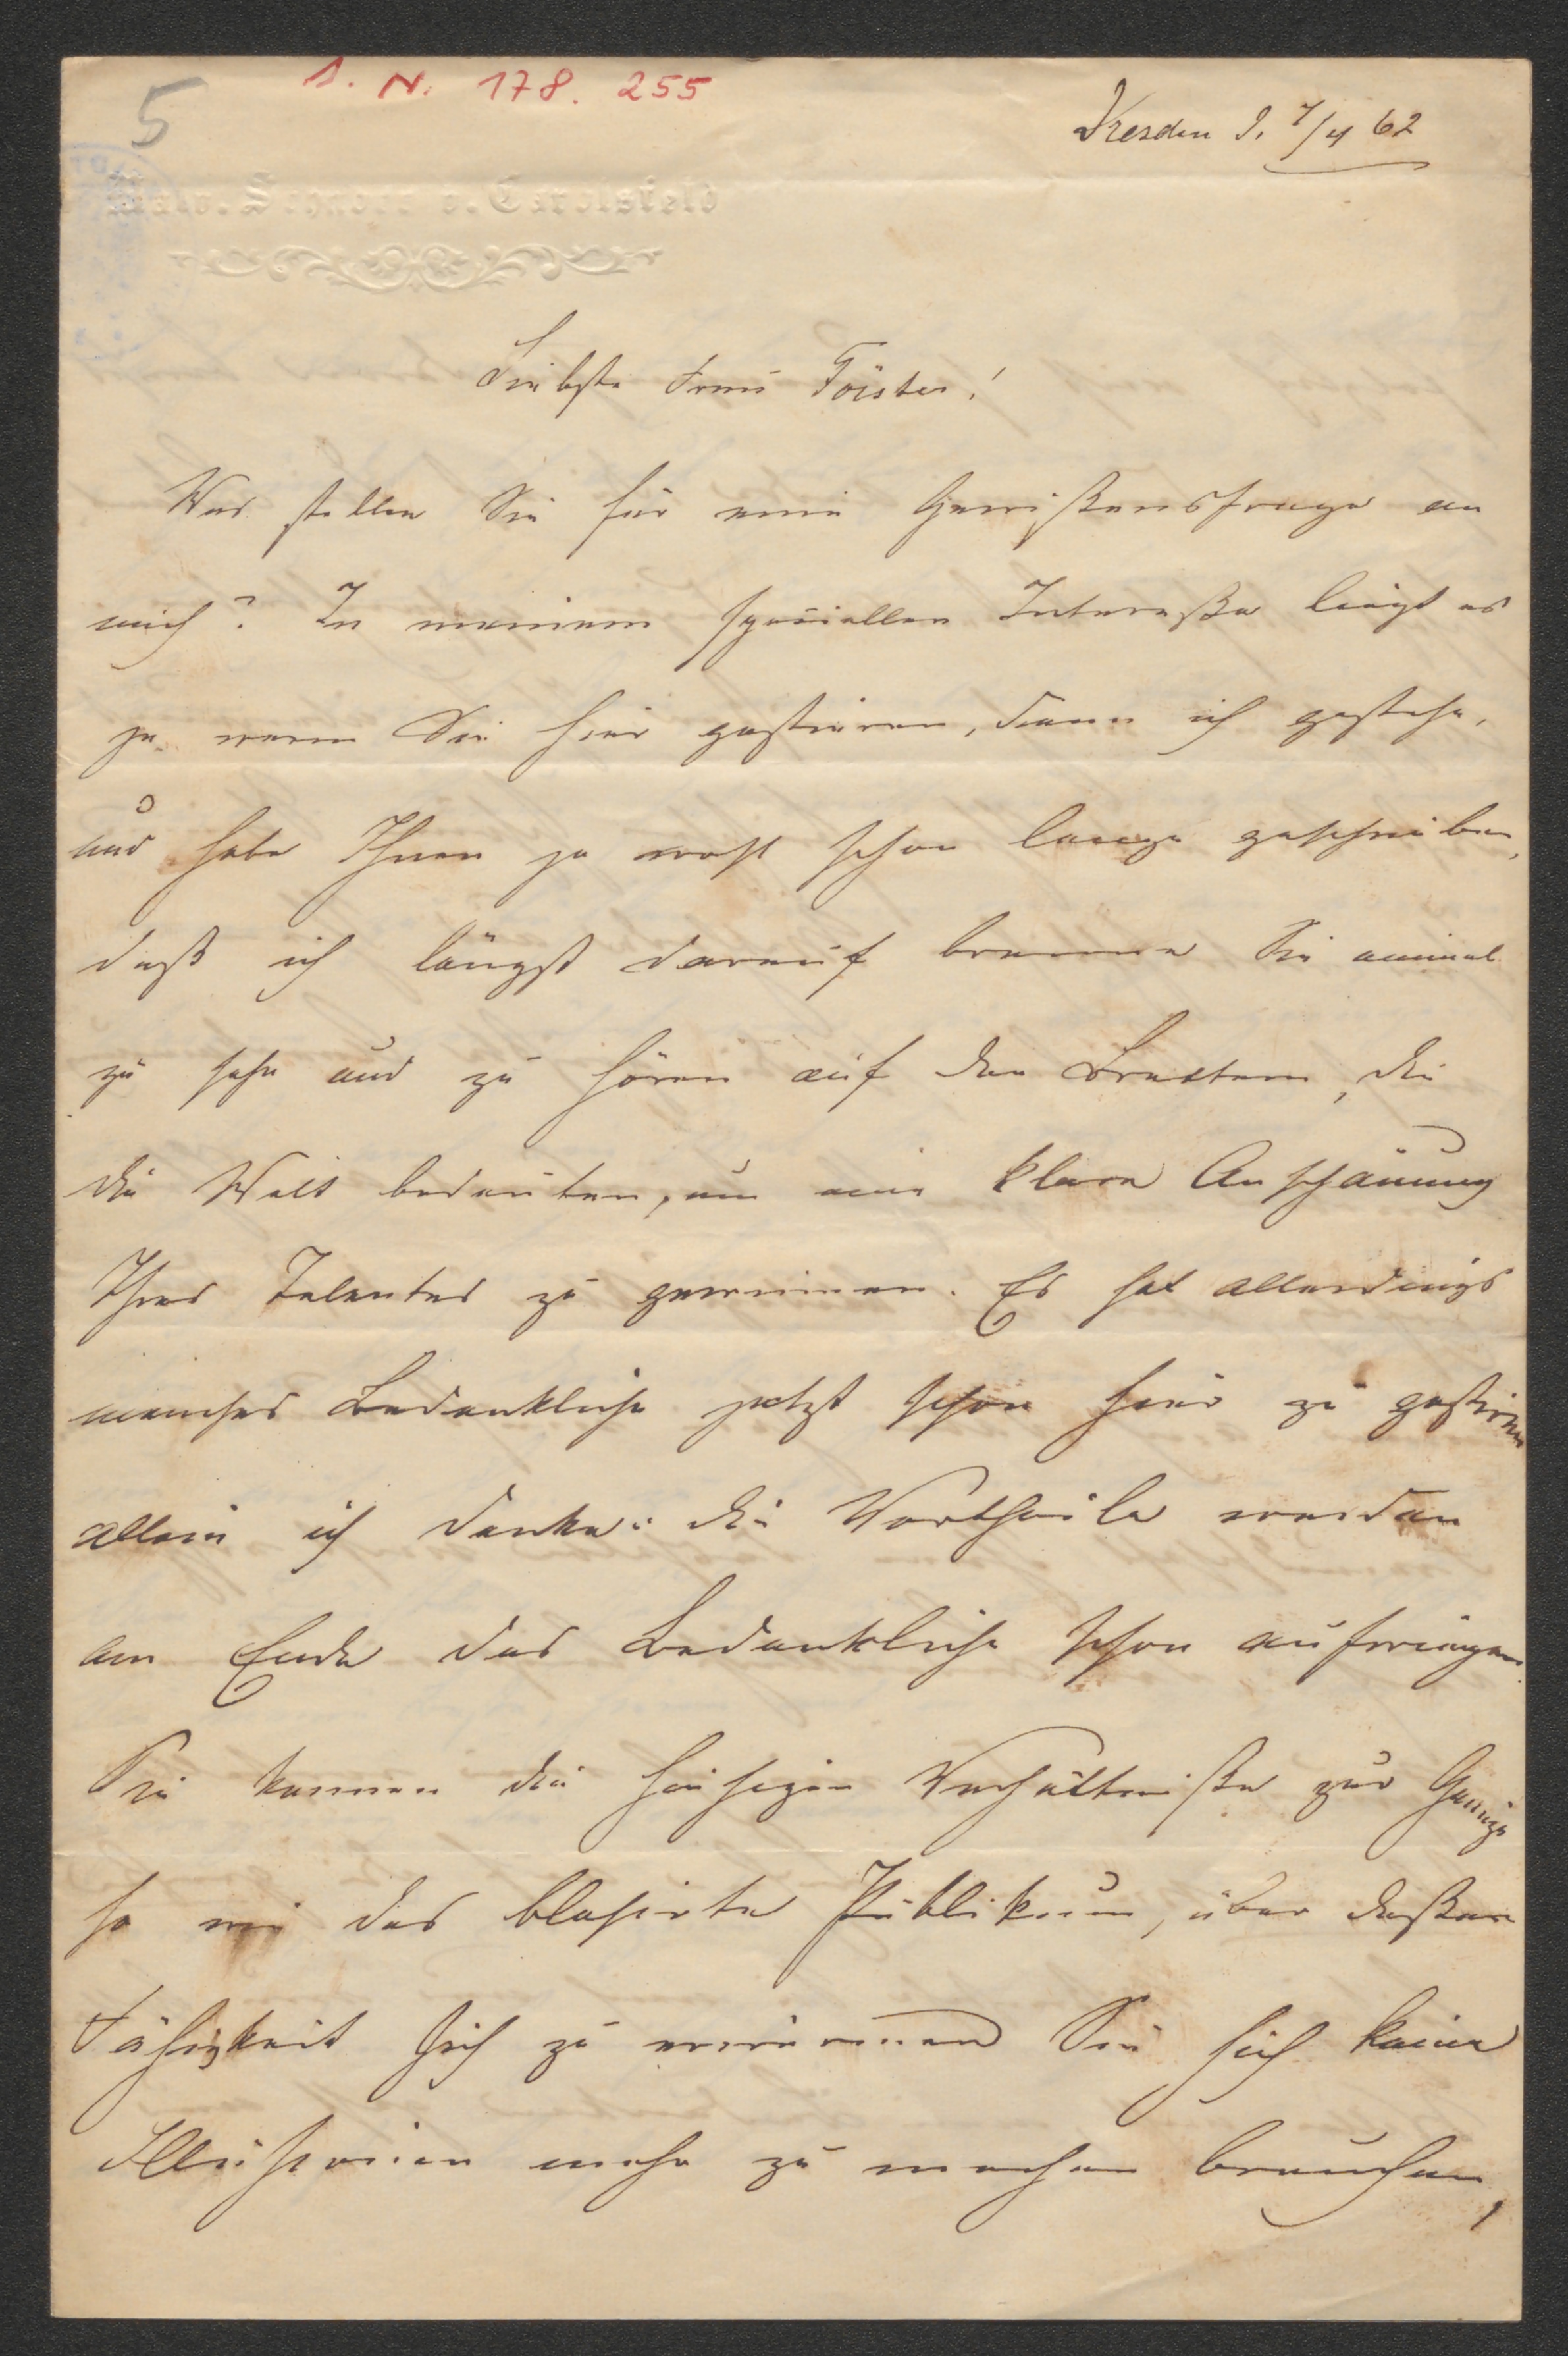 5
I. N. 178. 255
Dresden d. 7/4 62
Schnorr v. Carolsfeld
Liebste Frau Förster!
Was stellen Sie für eine Gewißensfrage an
mich? In meinem speciellen Intereße liegt es
ja wenn Sie hier gastieren, denn ich gestehe,
und habe Ihnen ja wohl schon lange geschrieben,
daß ich längst darauf brenne Sie einmal
zu sehn und zu hören auf den Brettern, die
die Welt bedeuten, um eine klare Anschauung
Ihres Talentes zu gewinnen. Es hat allerdings
manches Bedenkliche jetzt schon hier zu gastiren
allein ich denke: die Vortheile werden
am Ende das Bedenkliche schon aufwiegen.
Sie kennen die hiesigen Verhältniße zur Genüge
so wie das blasirte Publikum, über deßen
Fähigkeit sich zu erwärmen Sie sich keine
Illusionen mehr zu machen brauchen,